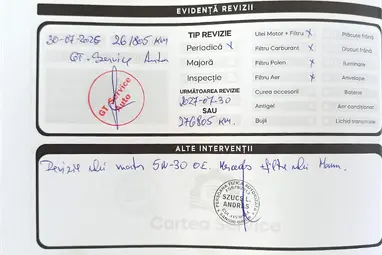 EVIDENȚA REVIZII
30-07-2025 261805 KM
GT-Service Auto
GT Service
Auto
TIP REVIZIE
Periodică X
Majoră
Inspecție
URMĂTOAREA REVIZIE
2027-07-30
SAU
276805 KM.
Ulei Motor + Filtru X
Filtru Carburant X
Filtru Polen X
Filtru Aer X
Curea accesorii
Antigel
Bujii
Plăcuțe frână
Discuri frână
Iluminare
Anvelope
Baterie
Aer condiționat
Lichid transmisie
ALTE INTERVENȚII
Revizie ulei motor 5W-30 O.E. Mercedes filtre ulei Mann.
SZUCS L.
ANDRÁS
Cartea Service